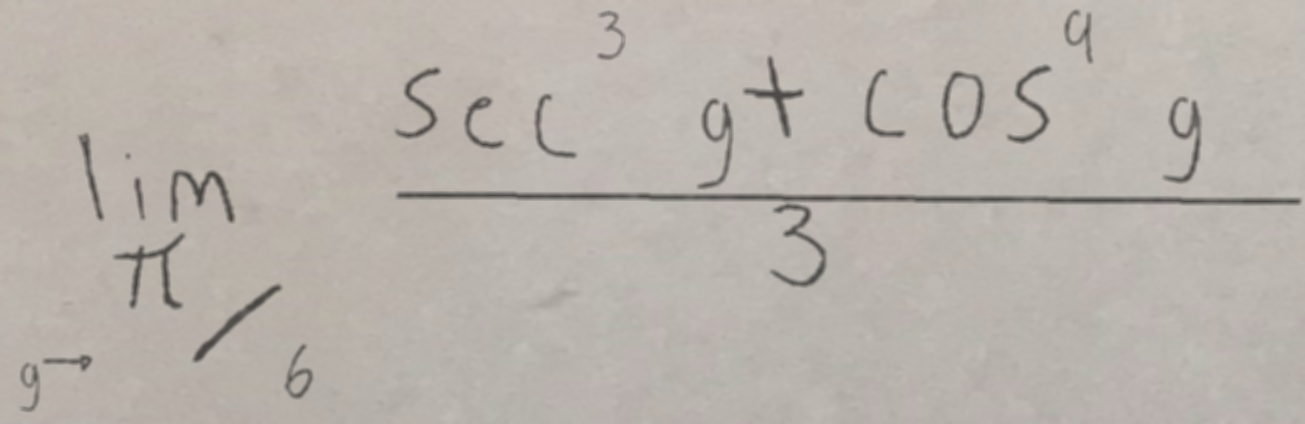 lim g→ π/6 (sec^3 g + cos^9 g)/3